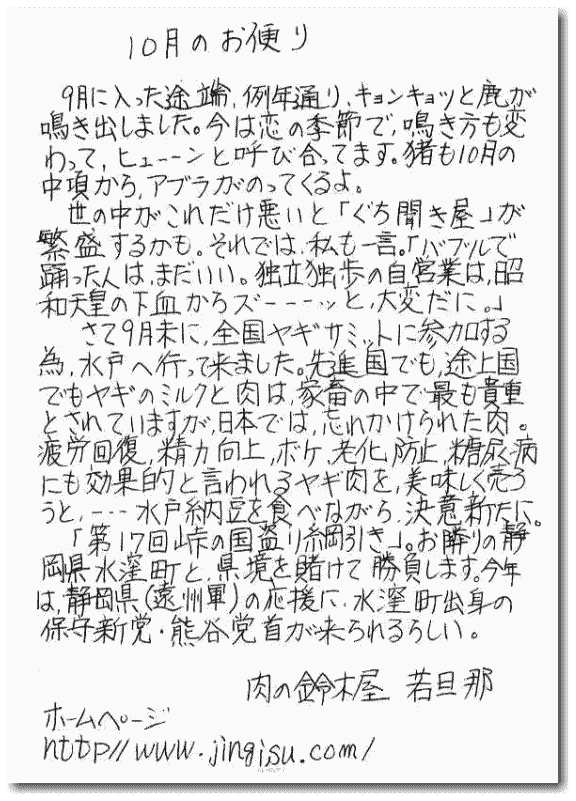 10月のお便り
9月に入った途端、例年通り、キョンキョッと鹿が
鳴き出しました。今は恋の季節で、鳴き方も変
わって、ヒューーンと呼び合ってます。猪も10月の
中項から、アブラがのってくるよ。
世の中がこれだけ悪いと「ぐち聞き屋」が
繁盛するかも。それでは、私も一言。「バブルで
踊った人は、まだいい。独立独歩の自営業は、昭
和天皇の下血からズーーーッと、大変だに。」
さて9月末に、全国ヤギサミットに参加する
為、水戸へ行って来ました。先進国でも、途上国
でもヤギのミルクと肉は、家畜の中で最も貴重
とされていますが、日本では、忘れかけられた肉。
疲労回復、精力向上、ボケ、老化、防止、糖尿病
にも効果的と言われるヤギ肉を、美味しく売ろ
うと、---水戸納豆を食べながら、決意新たに。
「第17回峠の国盗り綱引き」。お隣りの静
岡県水窪町と、県境を賭けて勝負します。今年
は、静岡県(遠州軍)の応援に、水窪町出身の
保守新党・熊谷党首が来られるらしい。
肉の鈴木屋 若旦那
ホームページ
http//www.jingisu.com/